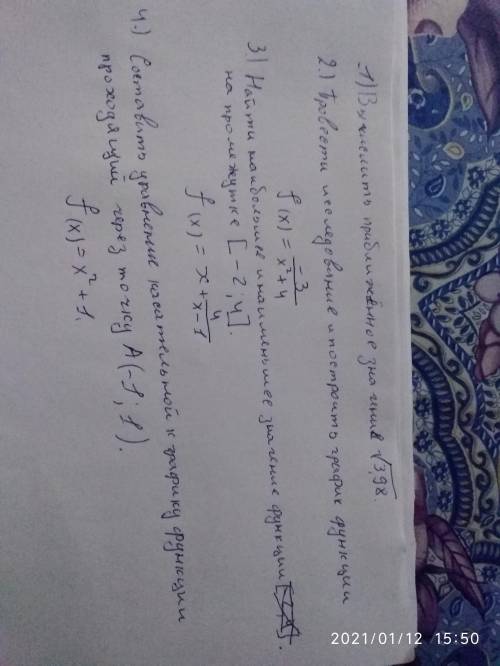 1) Вычислить приближённое значение √3,98.
2.) Провести исследование и построить график функции
f(x) = -3/(x²+4)
3) Найти наибольшее и наименьшее значение функции
на промежутке [-2; 4].
f(x) = x + 4/(x-1)
4.) Составить уравнение касательной к графику функции
проходящий через точку A(-1; 1).
f(x) = x² + 1.
2021/01/12 15:50